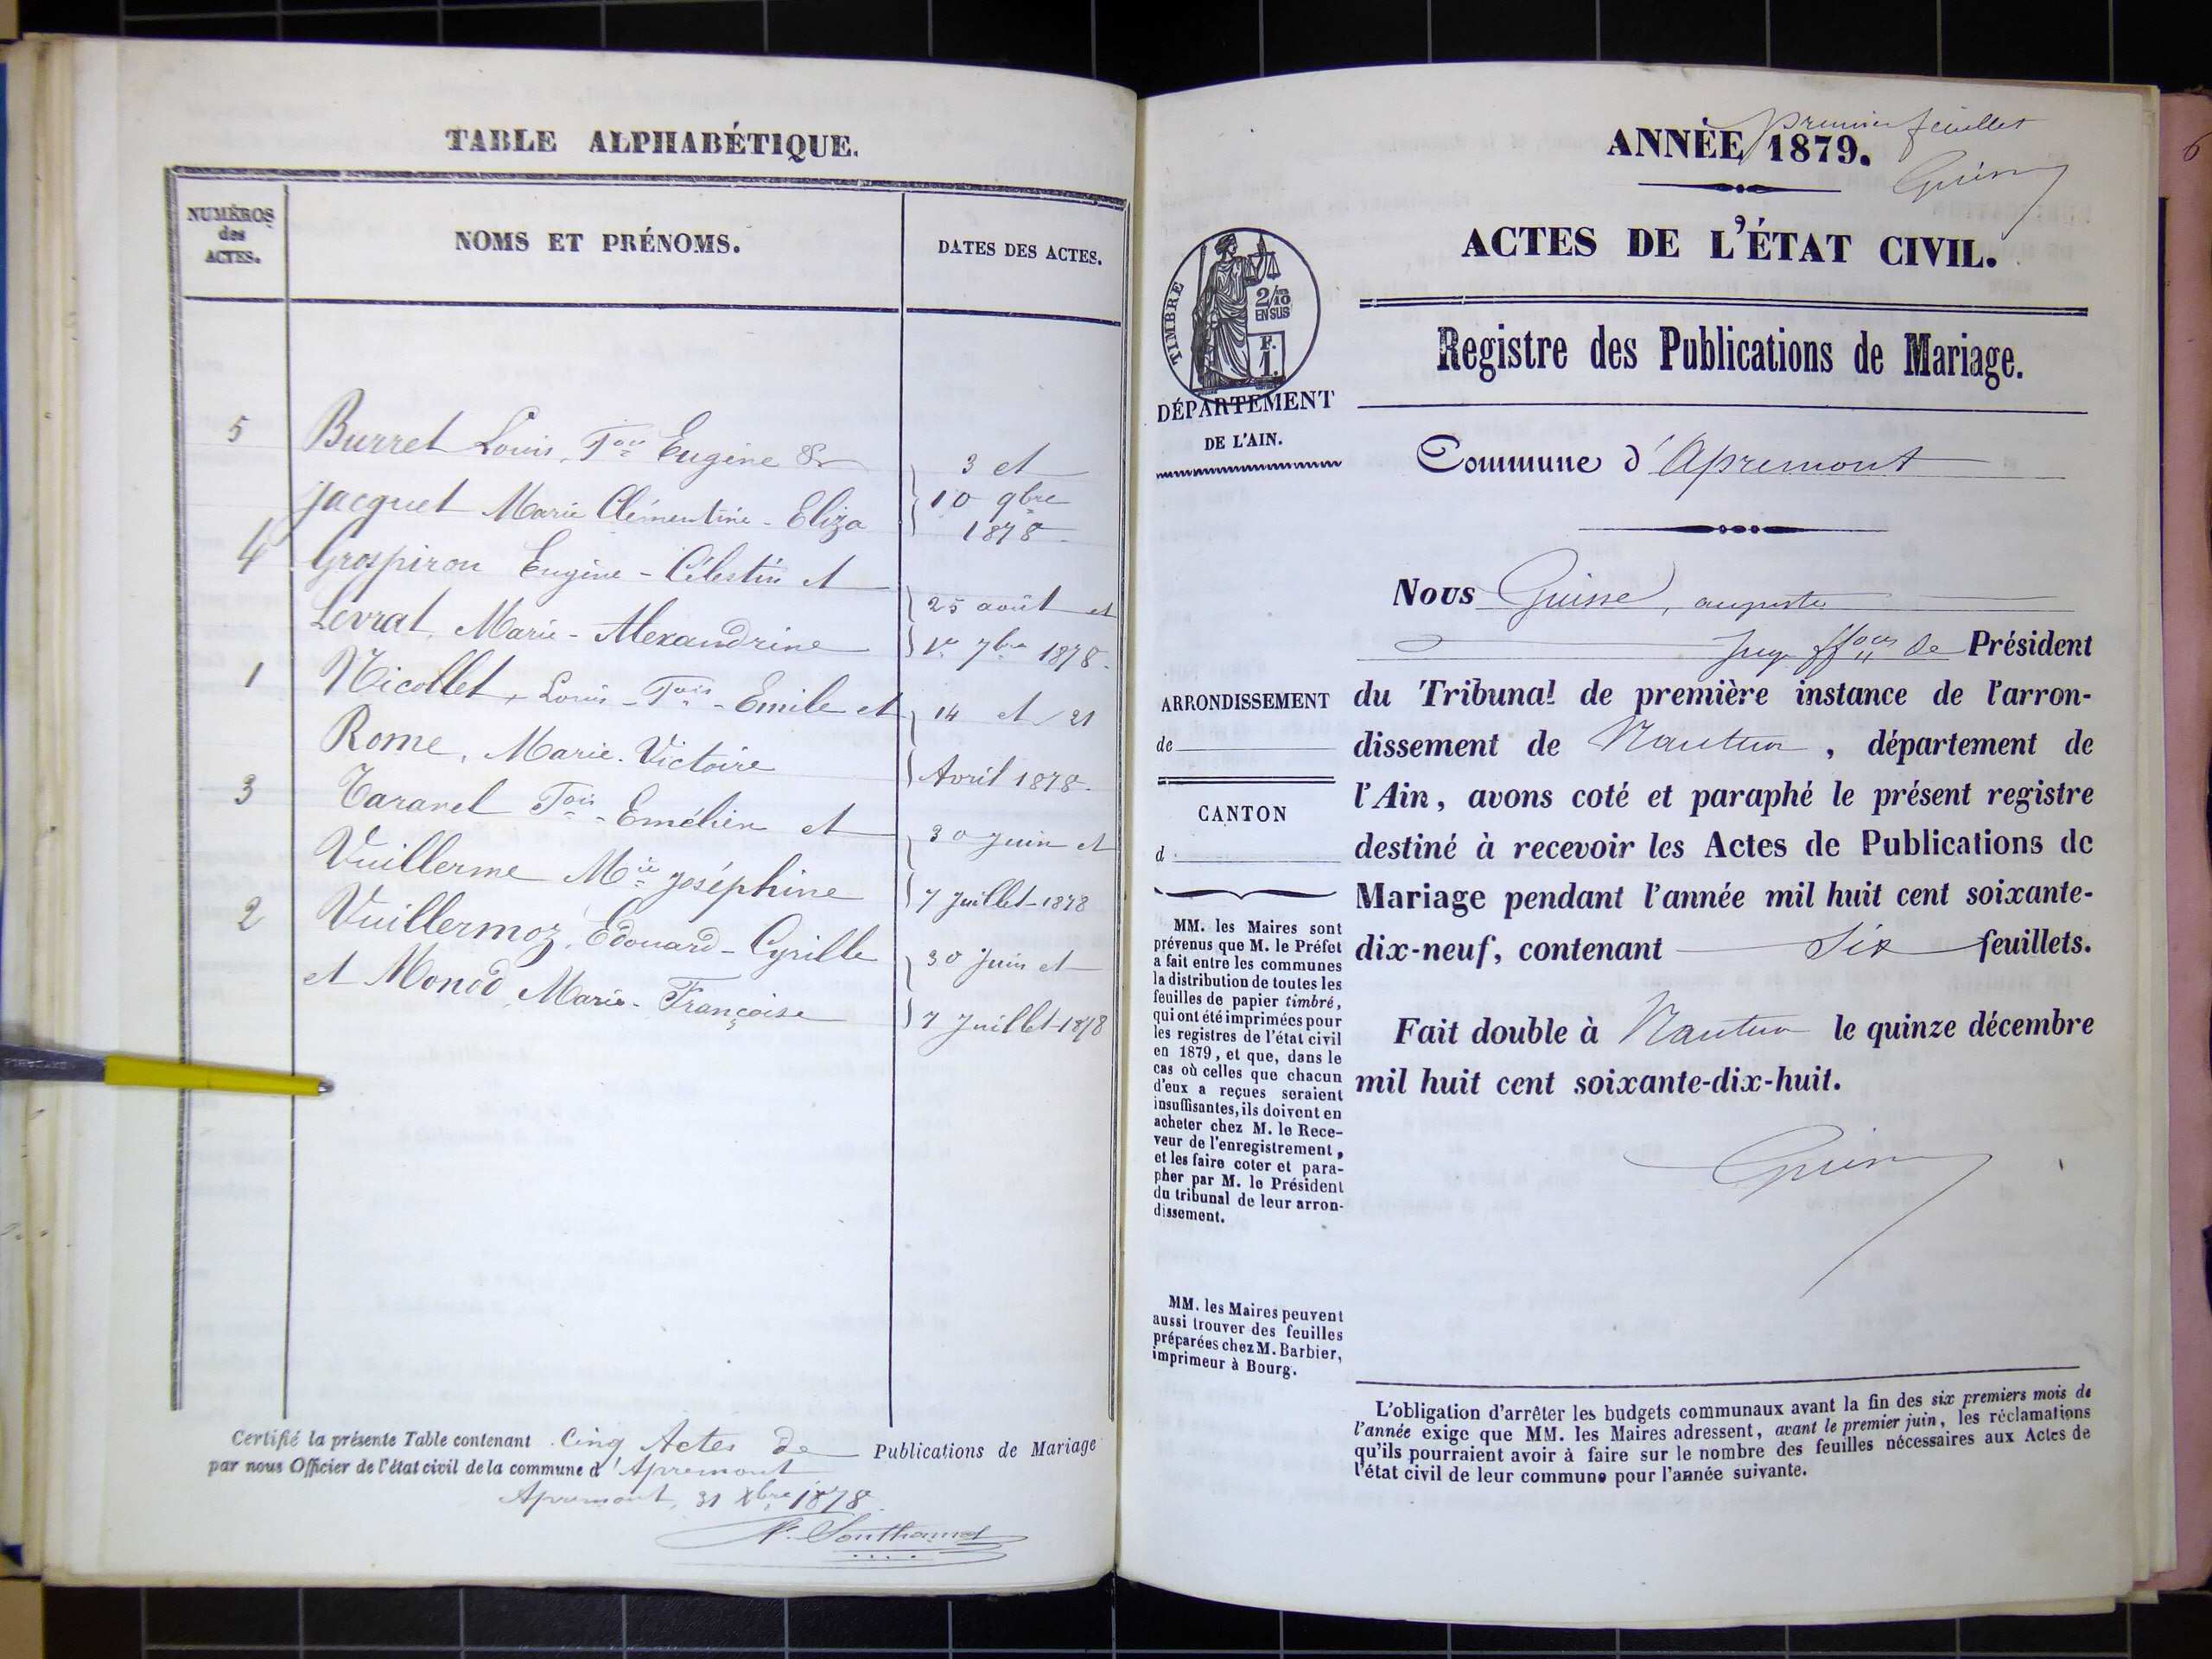 TABLE ALPHABÉTIQUE.
NUMÉROS
des
ACTES.
NOMS ET PRÉNOMS.
DATES DES ACTES.
5 Burret Louis, Fois Eugène &
3 et
Jacquet Marie Clémentine - Eliza
10 9bre
1878
4 Grospiron Eugène - Célestin et
25 août et
Levrat, Marie - Alexandrine
1er 7bre 1878.
1 Nicollet, Louis - Fois - Emile et
14 et 21
Rome, Marie. Victoire
Avril 1878.
3 Tararel Fois - Emélien et
30 Juin et
Vuillerme Mie Joséphine
7 Juillet - 1878
2 Vuillermoz, Edouard - Cyrille
30 Juin et
et Monod, Marie - Françoise
7 Juillet - 1878
Certifié la présente Table contenant Cinq Actes de Publications de Mariage
par nous Officier de l'état civil de la commune d'Apremont
Apremont, 31 Xbre 1878.
premier feuillet
ANNÉE 1879.
6
ACTES DE L'ÉTAT CIVIL.
Registre des Publications de Mariage.
TIMBRE
2/10
EN SUS
F.
1.
DÉPARTEMENT
DE L'AIN.
Commune d'Apremont
Nous Guisse, auguste
Juge ffons de Président
du Tribunal de première instance de l'arron-
dissement de Nantua, département de
l'Ain, avons coté et paraphé le présent registre
destiné à recevoir les Actes de Publications de
Mariage pendant l'année mil huit cent soixante-
dix-neuf, contenant Six feuillets.
Fait double à Nantua le quinze décembre
mil huit cent soixante-dix-huit.
ARRONDISSEMENT
de
CANTON
d
MM. les Maires sont
prévenus que M. le Préfet
a fait entre les communes
la distribution de toutes les
feuilles de papier timbré,
qui ont été imprimées pour
les registres de l'état civil
en 1879, et que, dans le
cas où celles que chacun
d'eux a reçues seraient
insuffisantes, ils doivent en
acheter chez M. le Rece-
veur de l'enregistrement,
et les faire coter et para-
pher par M. le Président
du tribunal de leur arron-
dissement.
MM. les Maires peuvent
aussi trouver des feuilles
préparées chez M. Barbier,
imprimeur à Bourg.
L'obligation d'arrêter les budgets communaux avant la fin des six premiers mois de
l'année exige que MM. les Maires adressent, avant le premier juin, les réclamations
qu'ils pourraient avoir à faire sur le nombre des feuilles nécessaires aux Actes de
l'état civil de leur commune pour l'année suivante.